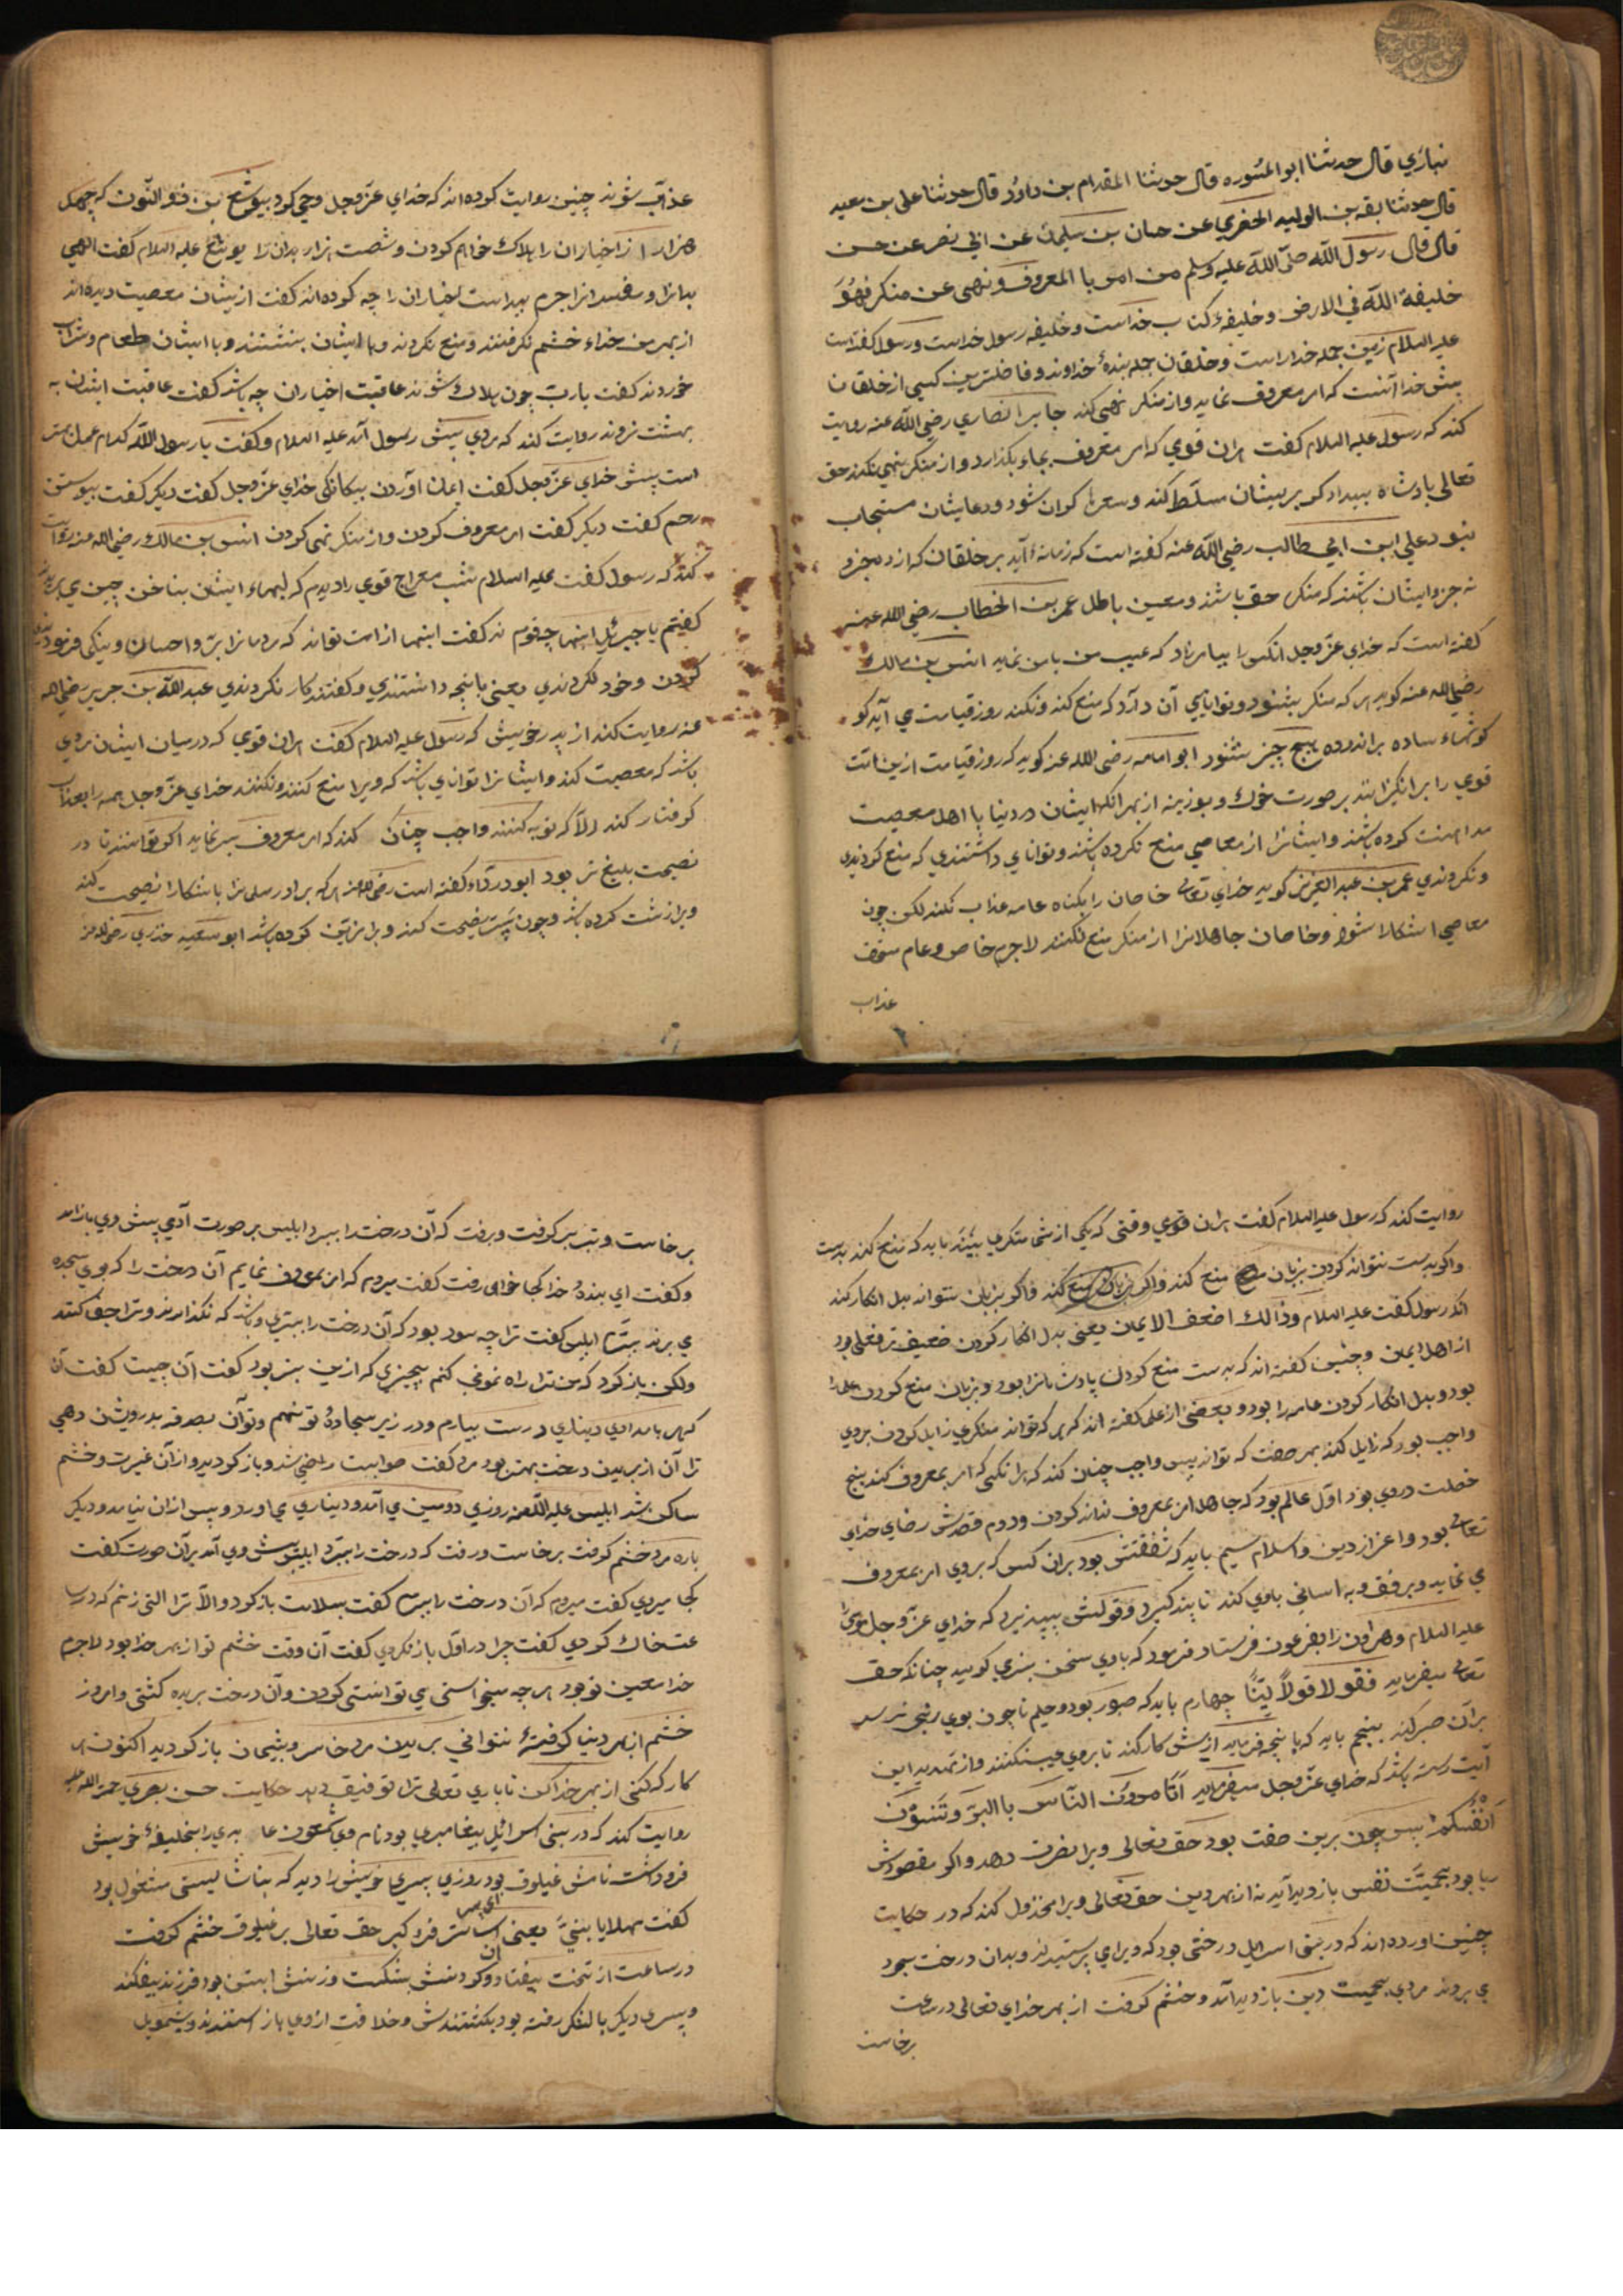 نباري قال حدثنا ابو المسوره قال حدثنا المقدام بن داود قال حدثنا علي بن معبد
قال حدثنا بقه بن الوليد الحفري عن حسان بن سليمان عن ابي نصر عن حسن
قال قال رسول الله صلى الله عليه وسلم من امر با المعروف ونهى عن منكر فهو
خليفة الله في الارض و خليفهٔ كتاب خداست و خليفه رسول خداست و رسول گفته است
عليه السلام زمين جمله خداراست و خلقان جمله بندهٔ خداوند و فاضلترين كسى از خلقان
پيش خدا آنست كه امر معروف نمايد و از منكر نهى كند جابر انصاري رضي الله عنه رويت
كند كه رسول عليه السلام گفت هران قومي كه امر معروف بجاء بگذارد و از منكر نهى نكند حق
تعالى پادشاه بيدادگر بريشان مسلط كند و سعرها گران شود و دعايشان مستجاب
نبود علي ابن ابي طالب رضي الله عنه گفته است كه زمانهٔ آيد بر خلقان كه
نه جز و ايشان باشند كه منكر حق باشند و معين باطل عمر بن الخطاب رضي الله عنه
گفته است كه خداي عز و جل انكس را بيامرزاد كه عيب من با من نمايد انس بن مالك
رضي الله عنه گويد هر كه منكر بشنود و توانايي آن دارد كه منع كند و نكند روز قيامت مي آيد كو
گوشهاء ساده برانده هيچ چيز نشنود ابو امامه رضي الله عنه گويد كه روز قيامت ازين امت
قومي را برانگيزانند بر صورت خوك و بوزينه از بهر انكه ايشان در دنيا با اهل معصيت
مداهنت كرده باشند و ايشانرا از معاصي منع نكرده باشند و تواناي داشتندي كه منع كردندي
و نكردندي عمر بن عبد العزيز گويد خداي تعالى خاصان را بگناه عامه عذاب نكند لكن چون
معاصي اشكارا شود و خاصان جاهلانرا از منكر منع نكنند لاجرم خاص و عام مستحق
عذاب
عذاب شوند چنين روايت كرده اند كه خداي عز و جل وحي كرد بيوشع بن ذو النون كه چهل
هزار را از اخيار ان را هلاك خواهم كردن و شصت هزار بدان را يوشع عليه السلام گفت الهي
بدانرا و مفسدانرا جرم پيداست اخياران را چه كرده اند گفت ازيشان معصيت ديده اند
از بهر من خداء خشم نگرفتند و منع نكردند و با ايشان بنشستند و با ايشان طعام و شراب
خوردند گفت يارب چون هلاك شوند عاقبت اخياران چه باشد گفت عاقبت ايشان به
بهشت روند روايت كند كه مردي پيش رسول آمد عليه السلام و گفت يا رسول الله كدام عمل بهتر
است پيش خداي عز و جل گفت ايمان آوردن بيگانگي خداي عز و جل گفت ديگر گفت پيوستن
رحم گفت ديگر گفت امر معروف كردن و از منكر نهى كردن انس بن مالك رضي الله عنه روايت
كند كه رسول گفت عليه السلام شب معراج قومي را ديدم كه لبهاء ايشان بناخن چين مي
گفتم يا جبرئيل اينها چه قوم اند گفت اينها از امت تواند كه مردمانرا بر و احسان و نيكي فرمود
كردن و خود نكردندي يعنى بانچه دانستندي و گفتند كار نكردندي عبد الله بن جرير رضي الله
عنه روايت كند از پدر خويش كه رسول عليه السلام گفت هران قومي كه در ميان ايشان مردي
باشد كه معصيت كند و ايشانرا تواناي باشد كه ويرا منع كنند و نكنند خداي عز و جل همه را بعذاب
گرفتار كند الا كه توبه كنند واجب چنان كند كه امر معروف بسر نمايد اگر توانند تا در
نصيحت بليغ تر بود ابو درداء گفته است رضي الله عنه هر كه برادر مسلمانرا باشكارا نصيحت كند
ويرا زشت كرده باشد و چون بسر نصيحت كند ويرا مزين كرده باشد ابو سعيد خدري رضي الله عنه
روايت كند كه رسول عليه السلام گفت هران قومي وقتى كه يكي از شما منكري بيند بايد كه منع كند بدست
و اگر بدست نتواند كردن بزبان منع كند و اگر بزبان نتواند بدل انكار كند
انكه رسول گفت عليه السلام وذالك اضعف الايمان يعنى بدل انكار كردن ضعيف تر فعلى بود
از اهل ايمان و چنين گفته اند كه بدست منع كردن پادشاهانرا بود و بزبان منع كردن علما را
بود و بدل انكار كردن عامه را بود و بعضى از علما گفته اند كه هر كه تواند منكري زايل كردن بروي
واجب بود كه زايل كند بهر صفت كه تواند پس واجب چنان كند كه هرانكسى كه امر بمعروف كند پنج
خصلت در وي بود اول عالم بود كه جاهل امر بمعروف نداند كردن و دوم قصدش رضاي خداي
تعالى بود و اعزاز دين و اسلام سيم بايد كه شفقتش بود بران كس كه بروي امر بمعروف
مي نمايد و برفق و به اساني باوي كند تا پند گيرد و قولش بپذيرد كه خداي عز و جل موسى را
عليه السلام و هارون را بفرعون فرستاد فرمود كه باوي سخن بنرمي گوييد چنانكه حق
تعالى ميفرمايد فقولا قولا لينا چهارم بايد كه صبور بود و حليم تا چون بوي رنجى برسد
بران صبر كند پنجم بايد كه بانچه فرمايد ازيش كار كند تا بروي عيب نكنند و از تهديد اين
آيت رسته باشد كه خداي عز و جل ميفرمايد اتامرون الناس با البر وتنسون
انفسكم پس چون برين صفت بود حق تعالى ويرا نصرت دهد و اگر مقصودش
ريا بود بحميت نفس بازديد آيد نه از بهر دين حق تعالى ويرا مخذول كند كه در حكايت
چنين اورده اند كه در بنى اسرايل درختى بود كه ويراي پرستيدند و بدان درخت سجود
مي بردند مردي بحميت دين بازديد آمد و خشم گرفت از بهر خداي تعالى در ساعت
برخاست
برخاست و تبر بر گرفت و برفت كه آن درخت را ببرد ابليس بر صورت آدمي پيش وي باز آمد
و گفت اي بندهٔ خدا كجا خواهى رفت گفت ميروم كه امر بمعروف نمايم آن درخت را كه بوي سجده
مي برند ببرم ابليس گفت ترا چه سود بود كه آن درخت را ببري و باشد كه نگذارند و ترا جفا كنند
ولكن باز گرد كه من ترا راه نموني كنم بچيزي كه ازين بهتر بود گفت آن چيست گفت آن
كه هر بامدادي ديناري درست بيارم و در زير سجادهٔ تو نهم و تو آن بصدقه بدرويشان دهى
ترا آن از بريدن درخت بهتر بود مرد گفت صوابست راضي شد و باز گرديد و از آن غيرت و خشم
ساكن شد ابليس عليه اللعنه روزي دوسين مي آمد و ديناري مي اورد و پس از ان نيامد و ديگر
باره مرد خشم گرفت برخاست و رفت كه درخت را ببرد ابليس پيش وي آمد بر آن صورت گفت
كجا ميروي گفت ميروم كه آن درخت را ببرم گفت بسلامت باز گرد و الا ترا التى زنم كه در سا
عت خاك گردي گفت چرا در اول باز نگردي گفت آن وقت خشم تو از بهر خدا بود لاجرم
خدا معين تو بود هر چه ميخواستى مي توانستى كردن و آن درخت بريده گشتى و امروز
خشم از بهر دنيا گرفتهٔ نتوانى بريدن مرد خاسر و پشيمان باز گرديد اكنون هر
كار كه كنى از بهر خدا كن تا باري تعالى ترا توفيق دهد حكايت حسن بصري رحمة الله عليه
روايت كند كه در بنى اسرائل پيغامبري بود نام وي شمعون عابدي را خليفهٔ خويش
فرو داشت نامش غيلوق بود روزي پسري خويش را ديد كه بناشايستى مشغول بود
گفت مهلا يا بني يعنى اي پسر اسانتر فرو گير حق تعالى بر غيلوق خشم گرفت
در ساعت از تخت بيفتاد و گردنش بشكست و زنش ابستن بود فرزند بيفكند
و پسري ديگر بالشكر رفته بود بكشتندش و خلافت از وي باز استدند و شمويل